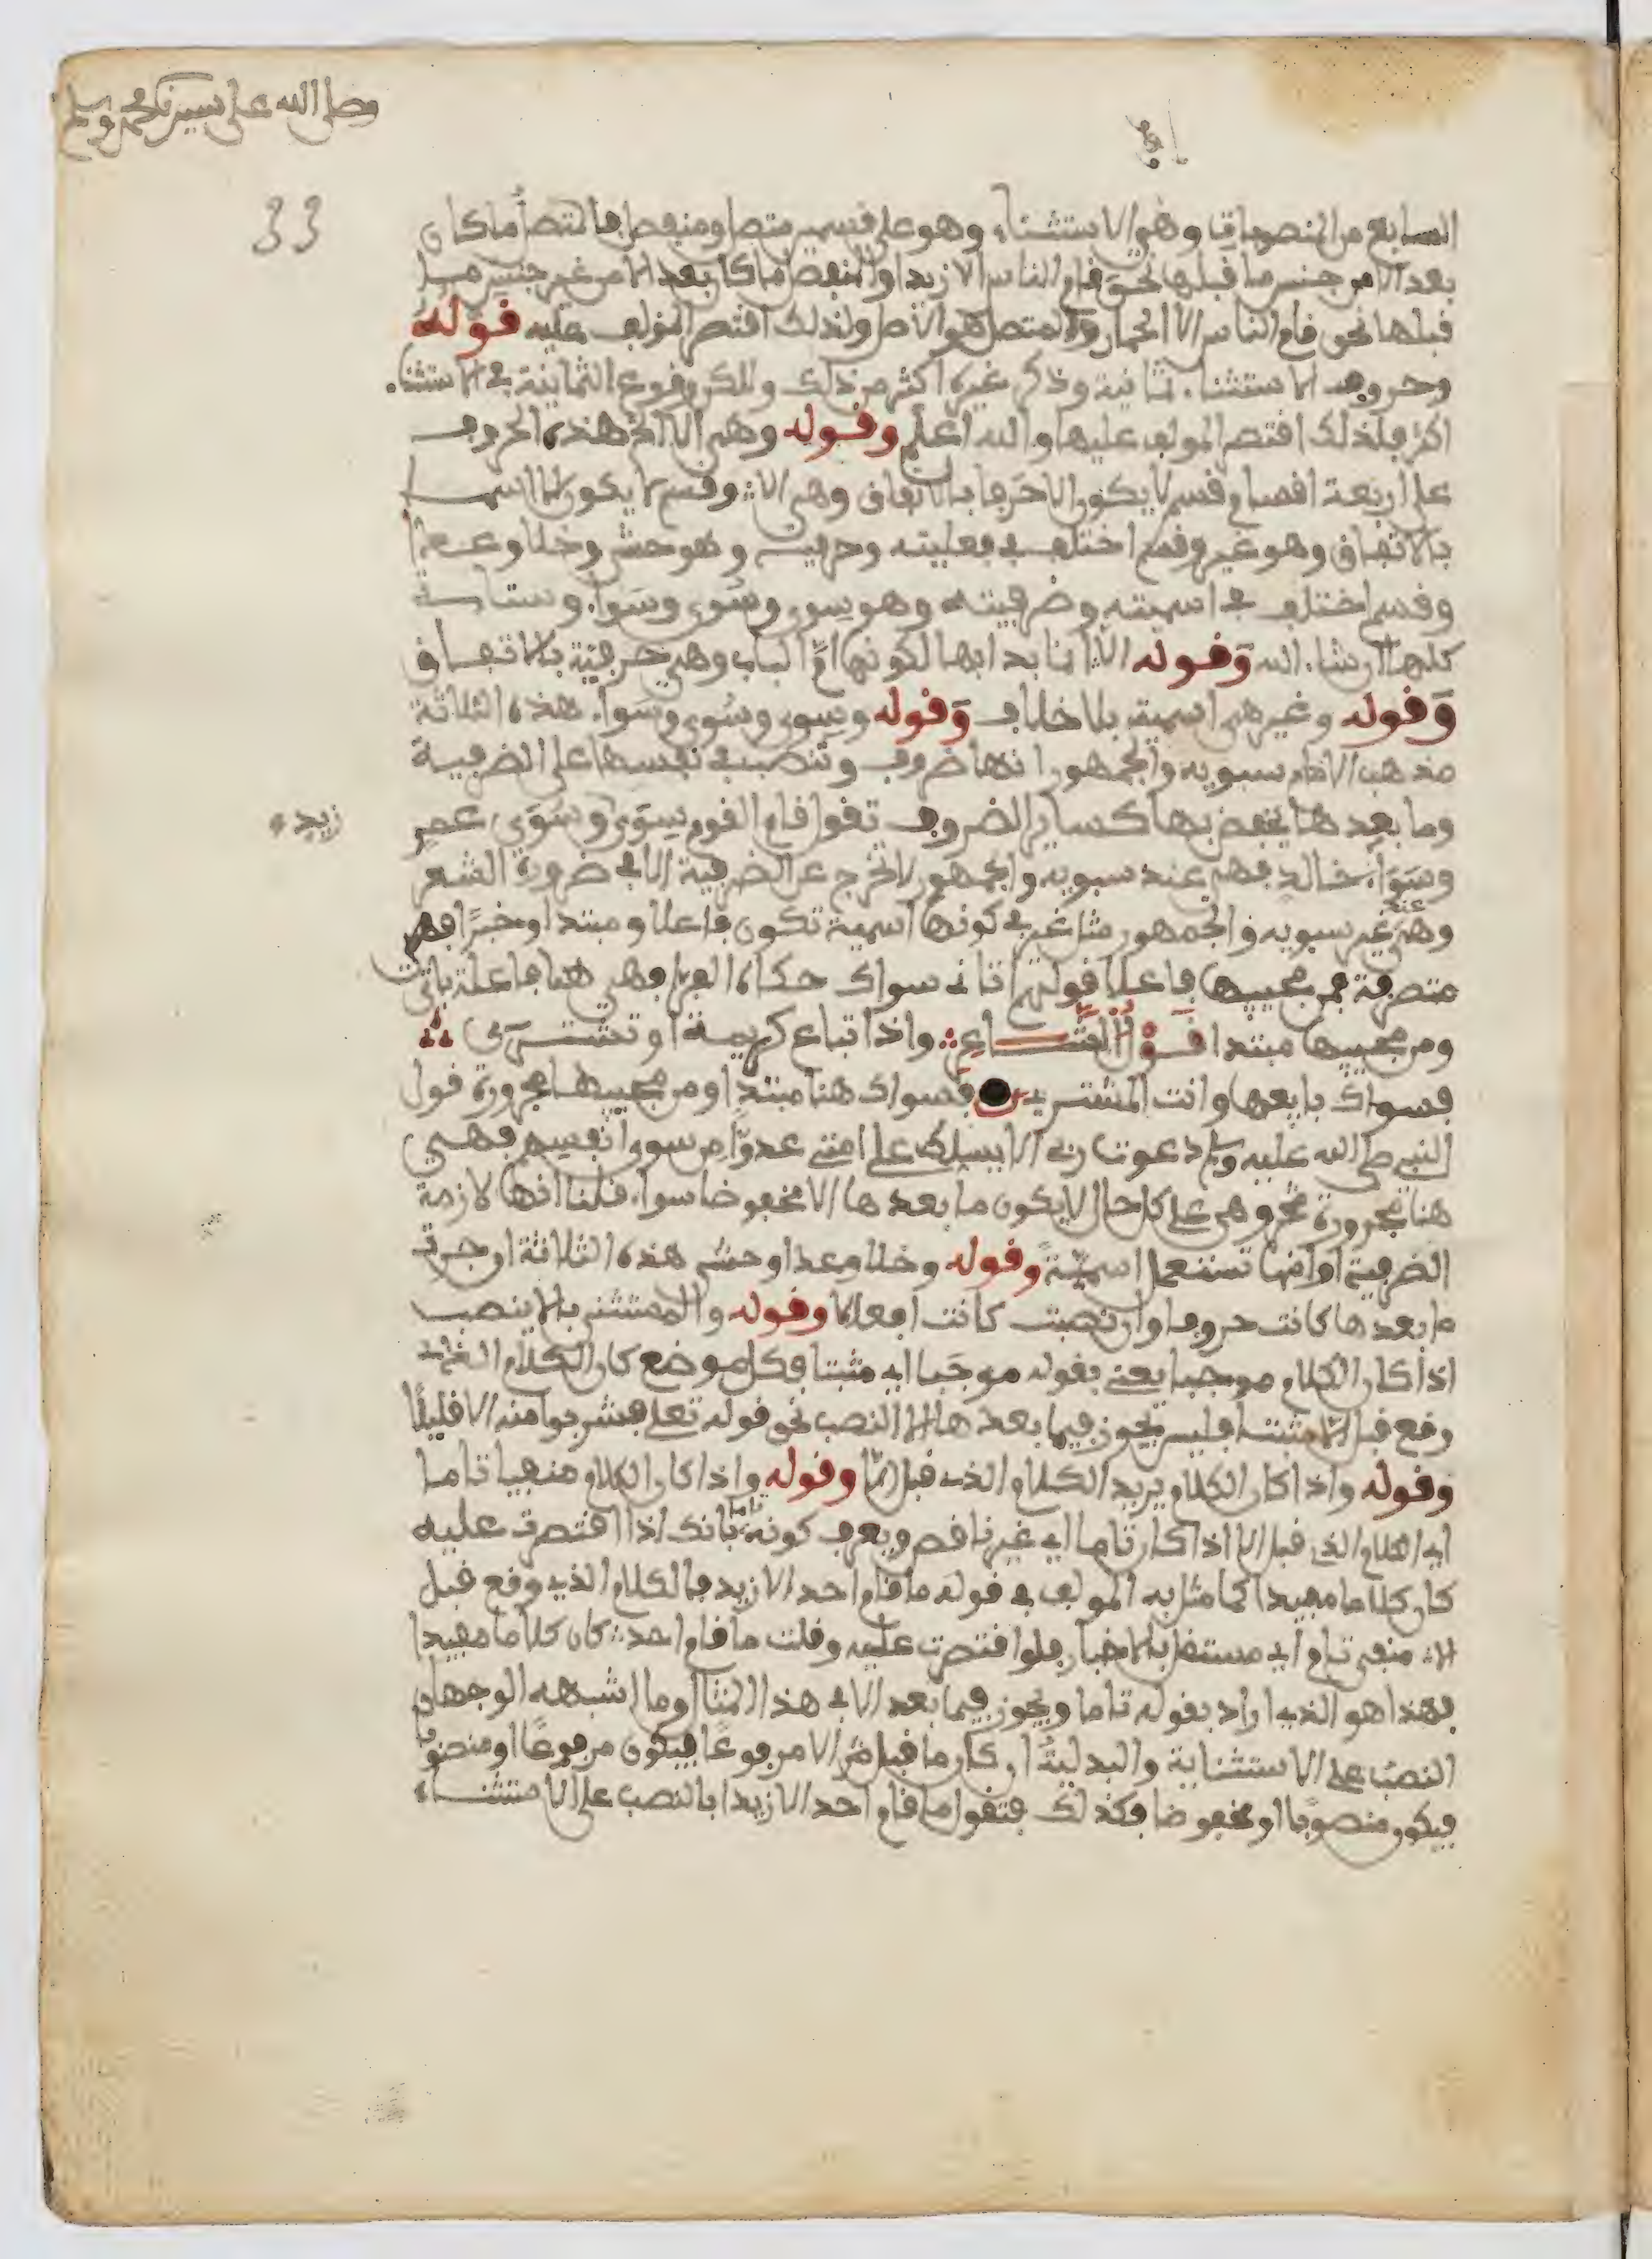 وصلى الله على سيدنا محمد وسلم
33
السابع من المنصوبات وهو الاستثناء وهو على قسمين متصل ومنفصل فالمتصل ما كان
بعد الا من جنس ما قبلها نحو قام الناس الا زيدا والمنفصل ما كان بعد الا من غير جنس ما
قبلها نحو قام الناس الا الحمار والمتصل هو الاصل ولذلك اقتصر المؤلف عليه قوله
وحروف الاستثناء ثمانية وذكر غيره اكثر من ذلك ولاكن وقوع الثمانية في الاستثناء
اكثر فلذلك اقتصر المولف عليها والله اعلم وقوله وهي الا الخ هذه الحروف
على اربعة اقسام قسم لا يكون الا حرفا بالاتفاق وهي الا وقسم لا يكون الا اسما
بالاتفاق وهو غير وقسم اختلف في فعليته وحرفيته وهو حشى وخلا وعدا
وقسم اختلف في اسميته وضرفيته وهو سوى وسُوى وسواء وستاتي
كلها ان شاء الله وقوله الا انما بدا بها لكونها ام الباب وهي حرفية بالاتفاق
وقوله وغير هي اسمية بلا خلاف وقوله وسوى وسُوى وسواء هذه الثلاثة
مذهب الامام سبويه والجمهور انها ضروف وتنصب في نفسها على الضرفية
وما بعدها يخفض بها كساير الضروف تقول قام القوم سِوَى وسُوَى عمر
زيد
وسواء خالد فهي عند سبويه والجمهور لا تخرج عن الضرفية الا في ضرورة الشعر
وهي عند غير سبويه والجمهور مثل غير في كونها اسمية تكون فاعلا ومبتدا وخبرا فهي
متصرفة فمن مجيبها فاعلا قولهم اتاني سواك حكاه الفراء وهي هنا فاعلة باتى
ومن مجيبها مبتدا قول الشاعر واذا تباع كريمة او تشترى
فسواك بايعها وانت المشتري فسواك هنا مبتدا ومن مجيبها مجرورة قول
النبي صلى الله عليه وسلم دعوت ربي الا يسلط على امتي عدوا من سوى انفسهم فهي
هنا مجرورة بمن وهي على كل حال لا يكون ما بعدها الا مخفوضا سواء قلنا انها لازمة
الضرفية او انها تستعمل اسمية وقوله وخلا وعدا وحشى هذه الثلاثة ان جرت
ما بعدها كانت حروفا وان نصبت كانت افعالا وقوله والمستثنى بالا ينصب
اذا كان الكلام موجبا يعني بقوله موجبا اي مثبتا فكل موضع كان الكلام الذي
وقع قبل الا مثبتا فليس يجوز فيما بعدها الا النصب نحو قوله تعلى فشربوا منه الا قليلا
وقوله واذا كان الكلام يريد الكلام الذي قبل الا وقوله واذا كان الكلام منفيا تاما
اي الكلام الذي قبل الا اذا كان تاما اي غير ناقص ويعرف كونه تاما بانك اذا اقتصرت عليه
كان كلاما مفيدا كما مثل به المولف في قوله ما قام احد الا زيد فالكلام الذي وقع قبل
الا منفي تام اي مستقل بالاخبار فلو اقتصرت عليه وقلت ما قام احد كان كلاما مفيدا
فهذا هو الذي اراد بقوله تاما ويجوز فيما بعد الا في هذا المثال وما اشبهه الوجهان
النصب على الاستثناية والبدلية ان كان ما قبل الا مرفوعا فيكون مرفوعا او منصوبا
فيكون منصوبا او مخفوضا فكذلك فتقول ما قام احد الا زيدا بالنصب على الاستثناء